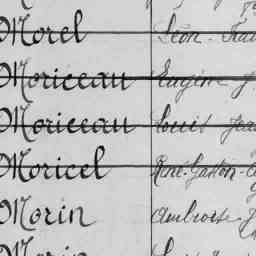 Morel Léon
Moriceau Eugène J
Moriceau Louis Jean
Moricel René Gaston
Morin Ambroise J
Morin